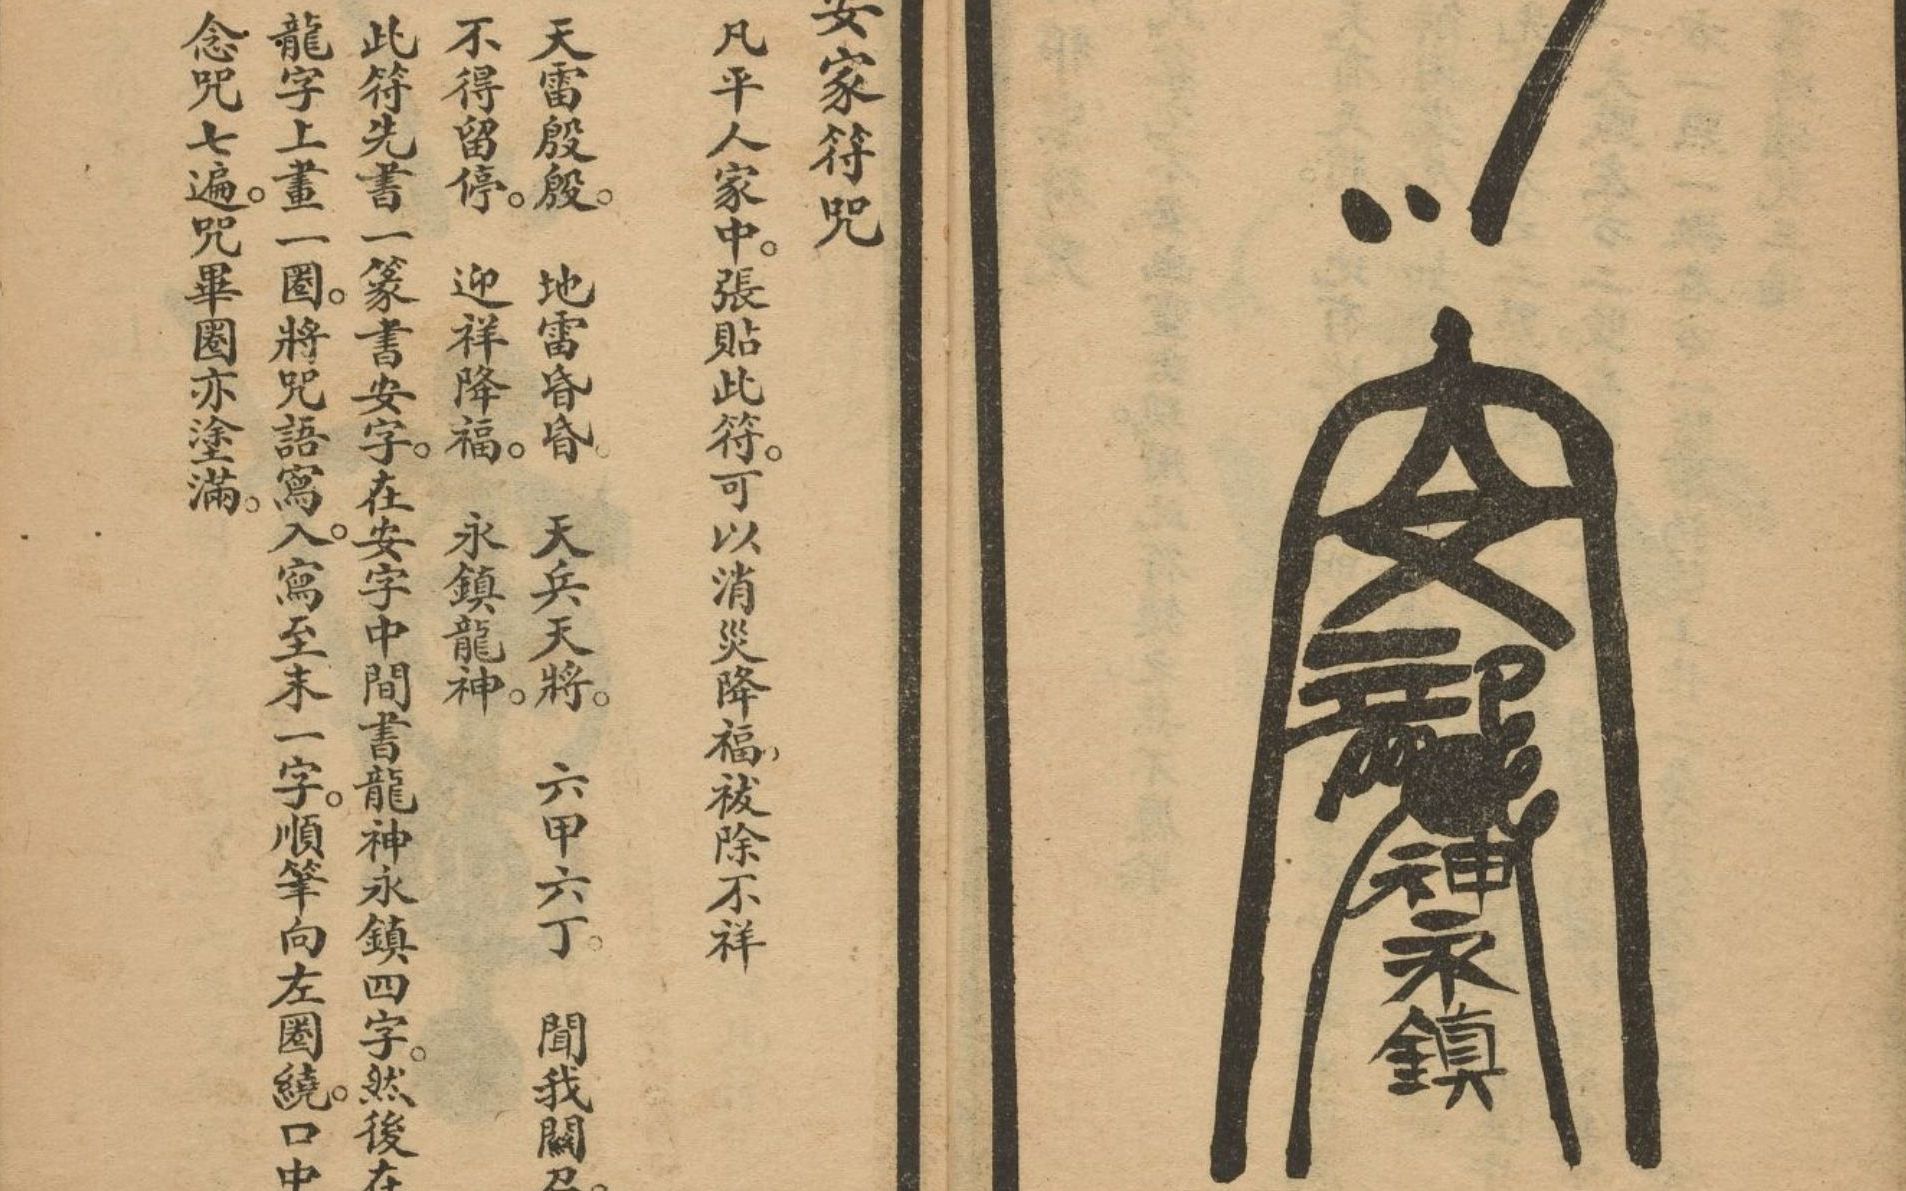 安
龍
神
永
鎮
安家符咒
凡平人家中。張貼此符。可以消災降福，祓除不祥
天雷殷殷。 地雷昏昏。 天兵天將。 六甲六丁。 聞我關召。
不得留停。 迎祥降福。 永鎮龍神。
此符先書一篆書安字。在安字中間書龍神永鎮四字。然後在
龍字上畫一圈。將咒語寫入。寫至末一字。順筆向左圈繞。口中
念咒七遍。咒畢圈亦塗滿。